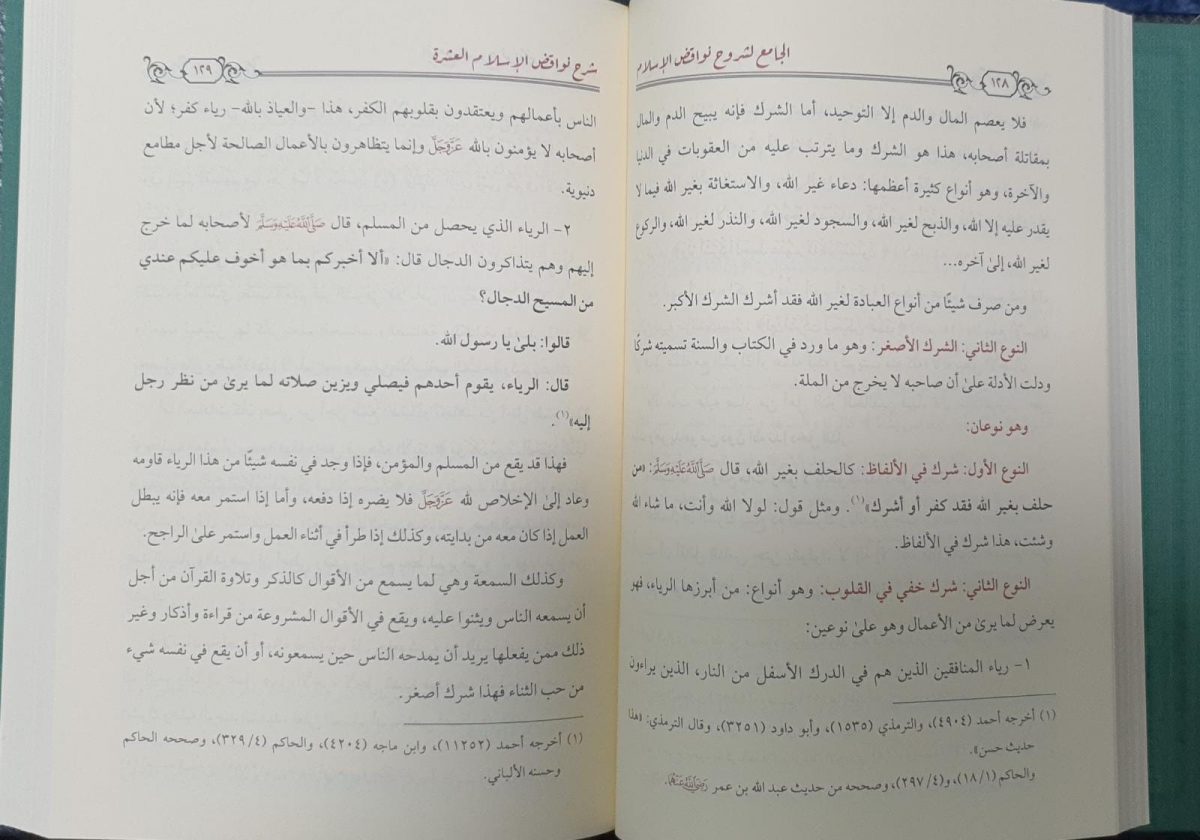 الجامع لشروح نواقض الإسلام
١٢٨
فلا يعصم المال والدم إلا التوحيد، أما الشرك فإنه يبيح الدم والمال
بمقاتلة أصحابه، هذا هو الشرك وما يترتب عليه من العقوبات في الدنيا
والآخرة، وهو أنواع كثيرة أعظمها: دعاء غير الله، والاستغاثة بغير الله فيما لا
يقدر عليه إلا الله، والذبح لغير الله، والسجود لغير الله، والنذر لغير الله، والركوع
لغير الله، إلىٰ آخره...
ومن صرف شيئًا من أنواع العبادة لغير الله فقد أشرك الشرك الأكبر.
النوع الثاني: الشرك الأصغر: وهو ما ورد في الكتاب والسنة تسميته شركًا
ودلت الأدلة علىٰ أن صاحبه لا يخرج من الملة.
وهو نوعان:
النوع الأول: شرك في الألفاظ: كالحلف بغير الله، قال صَلَّى اللَّهُ عَلَيْهِ وَسَلَّمَ: «من
حلف بغير الله فقد كفر أو أشرك»(١). ومثل قول: لولا الله وأنت، ما شاء الله
وشئت، هذا شرك في الألفاظ.
النوع الثاني: شرك خفي في القلوب: وهو أنواع: من أبرزها الرياء، فهو
يعرض لما يرىٰ من الأعمال وهو علىٰ نوعين:
١- رياء المنافقين الذين هم في الدرك الأسفل من النار، الذين يراءون
(١) أخرجه أحمد (٤٩٠٤)، والترمذي (١٥٣٥)، وأبو داود (٣٢٥١)، وقال الترمذي: «هذا
حديث حسن».
والحاكم (١/ ١٨)، و(٤/ ٢٩٧)، وصححه من حديث عبد الله بن عمر رَضِيَ اللَّهُ عَنْهُمَا.
شرح نواقض الإسلام العشرة
١٢٩
الناس بأعمالهم ويعتقدون بقلوبهم الكفر، هذا -والعياذ بالله- رياء كفر؛ لأن
أصحابه لا يؤمنون بالله عَزَّ وَجَلَّ وإنما يتظاهرون بالأعمال الصالحة لأجل مطامع
دنيوية.
٢- الرياء الذي يحصل من المسلم، قال صَلَّى اللَّهُ عَلَيْهِ وَسَلَّمَ لأصحابه لما خرج
إليهم وهم يتذاكرون الدجال قال: «ألا أخبركم بما هو أخوف عليكم عندي
من المسيح الدجال؟
قالوا: بلىٰ يا رسول الله.
قال: الرياء، يقوم أحدهم فيصلي ويزين صلاته لما يرىٰ من نظر رجل
إليه»(١).
فهذا قد يقع من المسلم والمؤمن، فإذا وجد في نفسه شيئًا من هذا الرياء قاومه
وعاد إلىٰ الإخلاص لله عَزَّ وَجَلَّ فلا يضره إذا دفعه، وأما إذا استمر معه فإنه يبطل
العمل إذا كان معه من بدايته، وكذلك إذا طرأ في أثناء العمل واستمر علىٰ الراجح.
وكذلك السمعة وهي لما يسمع من الأقوال كالذكر وتلاوة القرآن من أجل
أن يسمعه الناس ويثنوا عليه، ويقع في الأقوال المشروعة من قراءة وأذكار وغير
ذلك ممن يفعلها يريد أن يمدحه الناس حين يسمعونه، أو أن يقع في نفسه شيء
من حب الثناء فهذا شرك أصغر.
(١) أخرجه أحمد (١١٢٥٢)، وابن ماجه (٤٢٠٤)، والحاكم (٤/ ٣٢٩)، وصححه الحاكم
وحسنه الألباني.